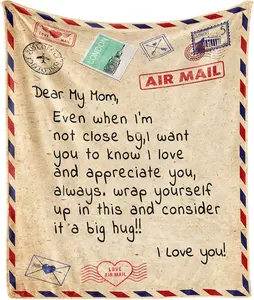 LONDON
5
AIR MAIL
Dear My Mom,
Even when I'm
not close by,I want
you to know I love
and appreciate you,
always. wrap yourself
up in this and consider
it a big hug!!
I love you!
LOVE
AIR-MAIL